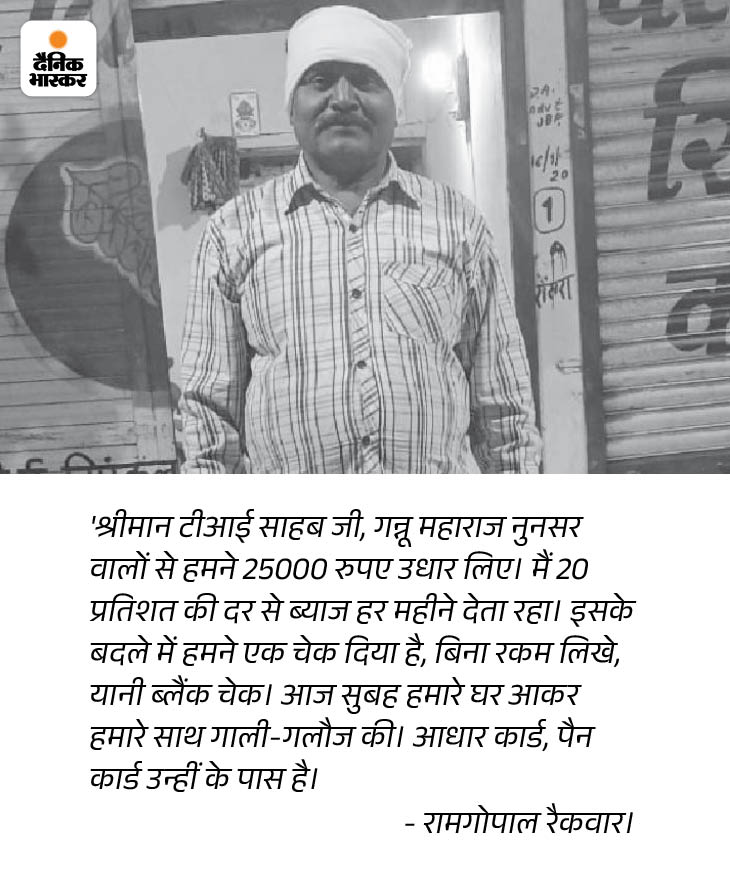 दैनिक
भास्कर
16/1/
20
1
'श्रीमान टीआई साहब जी, गन्नू महाराज नुनसर
वालों से हमने 25000 रुपए उधार लिए। मैं 20
प्रतिशत की दर से ब्याज हर महीने देता रहा। इसके
बदले में हमने एक चेक दिया है, बिना रकम लिखे,
यानी ब्लैंक चेक। आज सुबह हमारे घर आकर
हमारे साथ गाली-गलौज की। आधार कार्ड, पैन
कार्ड उन्हीं के पास है।
- रामगोपाल रैकवार।